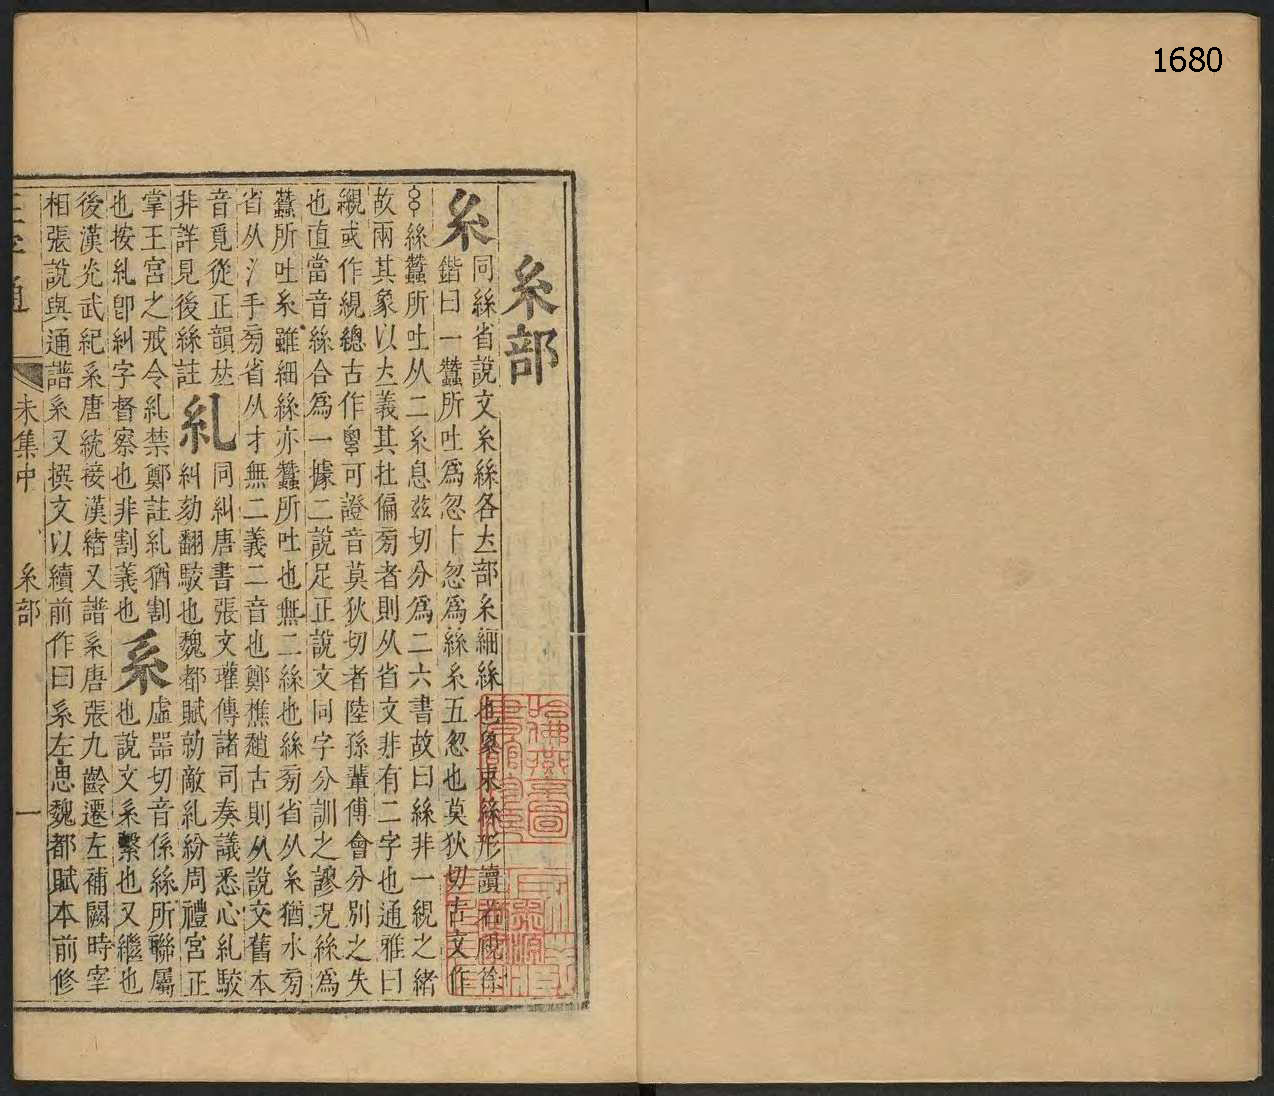 1680
糸部
糸同絲省說文糸絲各𠫤部糸細絲也象束絲形讀若覛徐
鍇曰一蠶所吐爲忽十忽爲絲糸五忽也莫狄切古文作
絲蠶所吐从二糸息兹切分爲二六書故曰絲非一繭之緒
故兩其象以𠫤義其在偏旁者則从省文非有二字也通雅曰
或作總古作可證音莫狄切者陸孫輩傅會分別之失
也直當音絲合爲一據二說足正說文同字分訓之謬況絲爲
蠶所吐糸雖細絲亦蠶所吐也無二絲也絲旁省从糸猶水旁
省从氵手旁省从才無二義二音也鄭樵趙古則从說文舊本
音覓從正韻𠀤
非詳見後絲註
糺同糾唐書張文瓘傳諸司奏議悉心糺駮
糾劾翻駮也魏都賦勍敵糺紛周禮宮正
掌王宮之戒令糺禁鄭註糺猶割
也按糺卽糾字督察也非割義也
系虛器切音係絲所聯屬
也說文系繫也又繼也
後漢光武紀系唐統接漢緒又譜系唐張九齡遷左補闕時宰
相張說與通譜系又撰文以續前作曰系左思魏都賦本前修
通
未集中
糸部
一